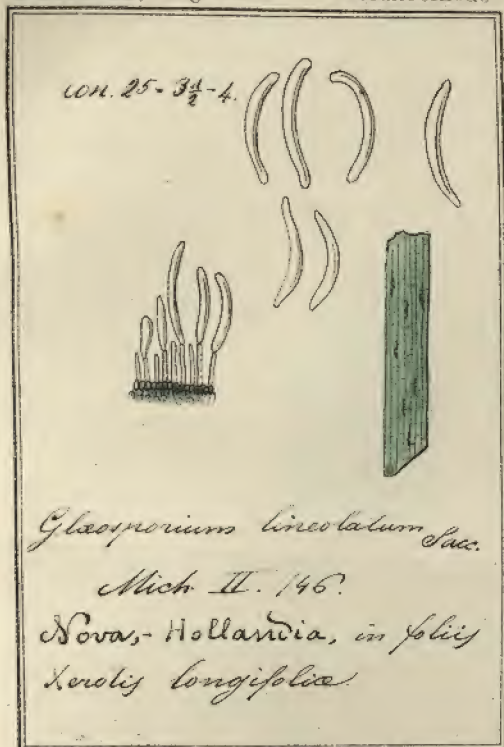 con. 25 = 3½-4.
Glæosporium lineolatum Sacc.
Mich. II. 146.
Nova,-Hollandia, in foliis
Xerotis longifoliæ